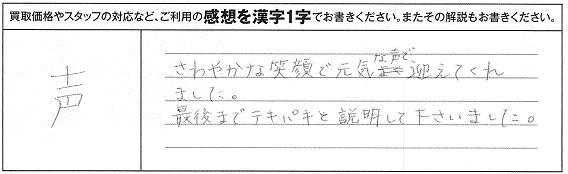 買取価格やスタッフの対応など、ご利用の感想を漢字1字でお書きください。またその解説もお書きください。
声
さわやかな笑顔で元気な声で迎えてくれ
ました。
最後までテキパキと説明して下さいました。